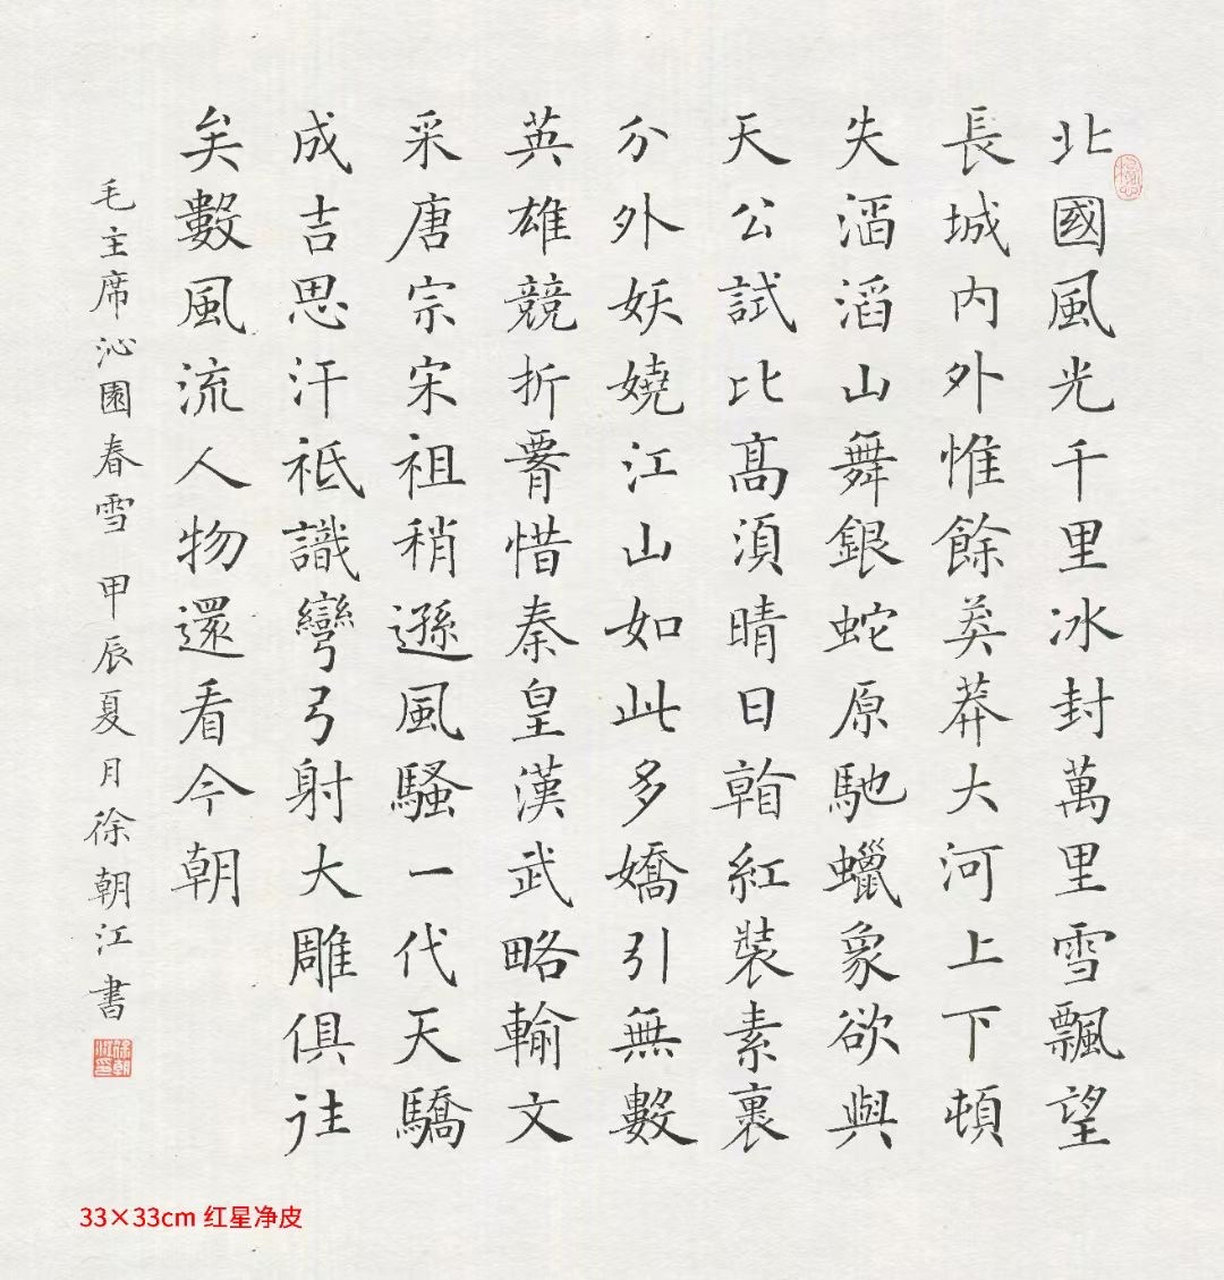 北國風光千里冰封萬里雪飄望
長城内外惟餘莽莽大河上下頓
失滔滔山舞銀蛇原馳蠟象欲與
天公試比髙湏晴日看紅裝素裹
分外妖嬈江山如此多嬌引無數
英雄競折腰惜秦皇漢武略輸文
采唐宗宋祖稍遜風騷一代天驕
成吉思汗祗識彎弓射大雕俱往
矣數風流人物還看今朝
毛主席沁園春雪 甲辰夏月徐朝江書
徐朝江印
33×33cm 红星净皮